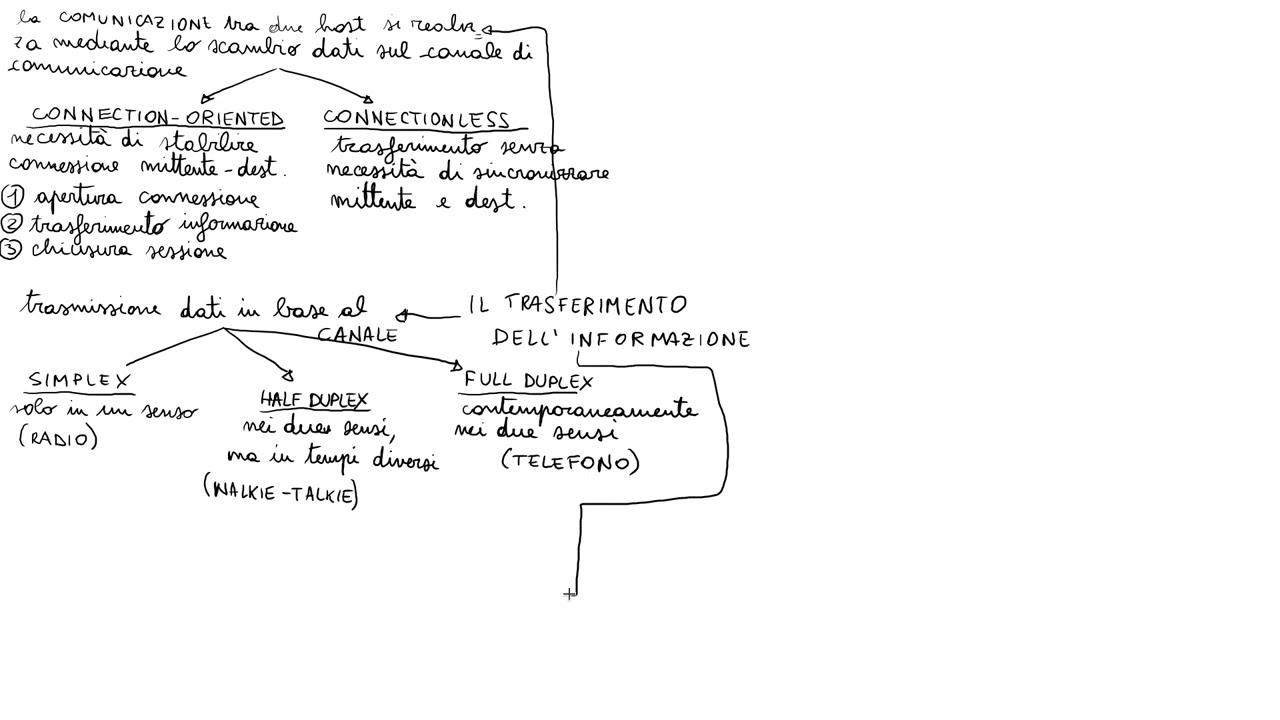 la COMUNICAZIONE tra due host si realiz=
za mediante lo scambio dati sul canale di
comunicazione
CONNECTION-ORIENTED
necessità di stabilire
connessione mittente-dest.
① apertura connessione
② trasferimento informazione
③ chiusura sessione
CONNECTIONLESS
trasferimento senza
necessità di sincronizzare
mittente e dest.
IL TRASFERIMENTO
DELL'INFORMAZIONE
trasmissione dati in base al
CANALE
SIMPLEX
solo in un senso
(RADIO)
HALF DUPLEX
nei due sensi,
ma in tempi diversi
(WALKIE-TALKIE)
FULL DUPLEX
contemporaneamente
nei due sensi
(TELEFONO)